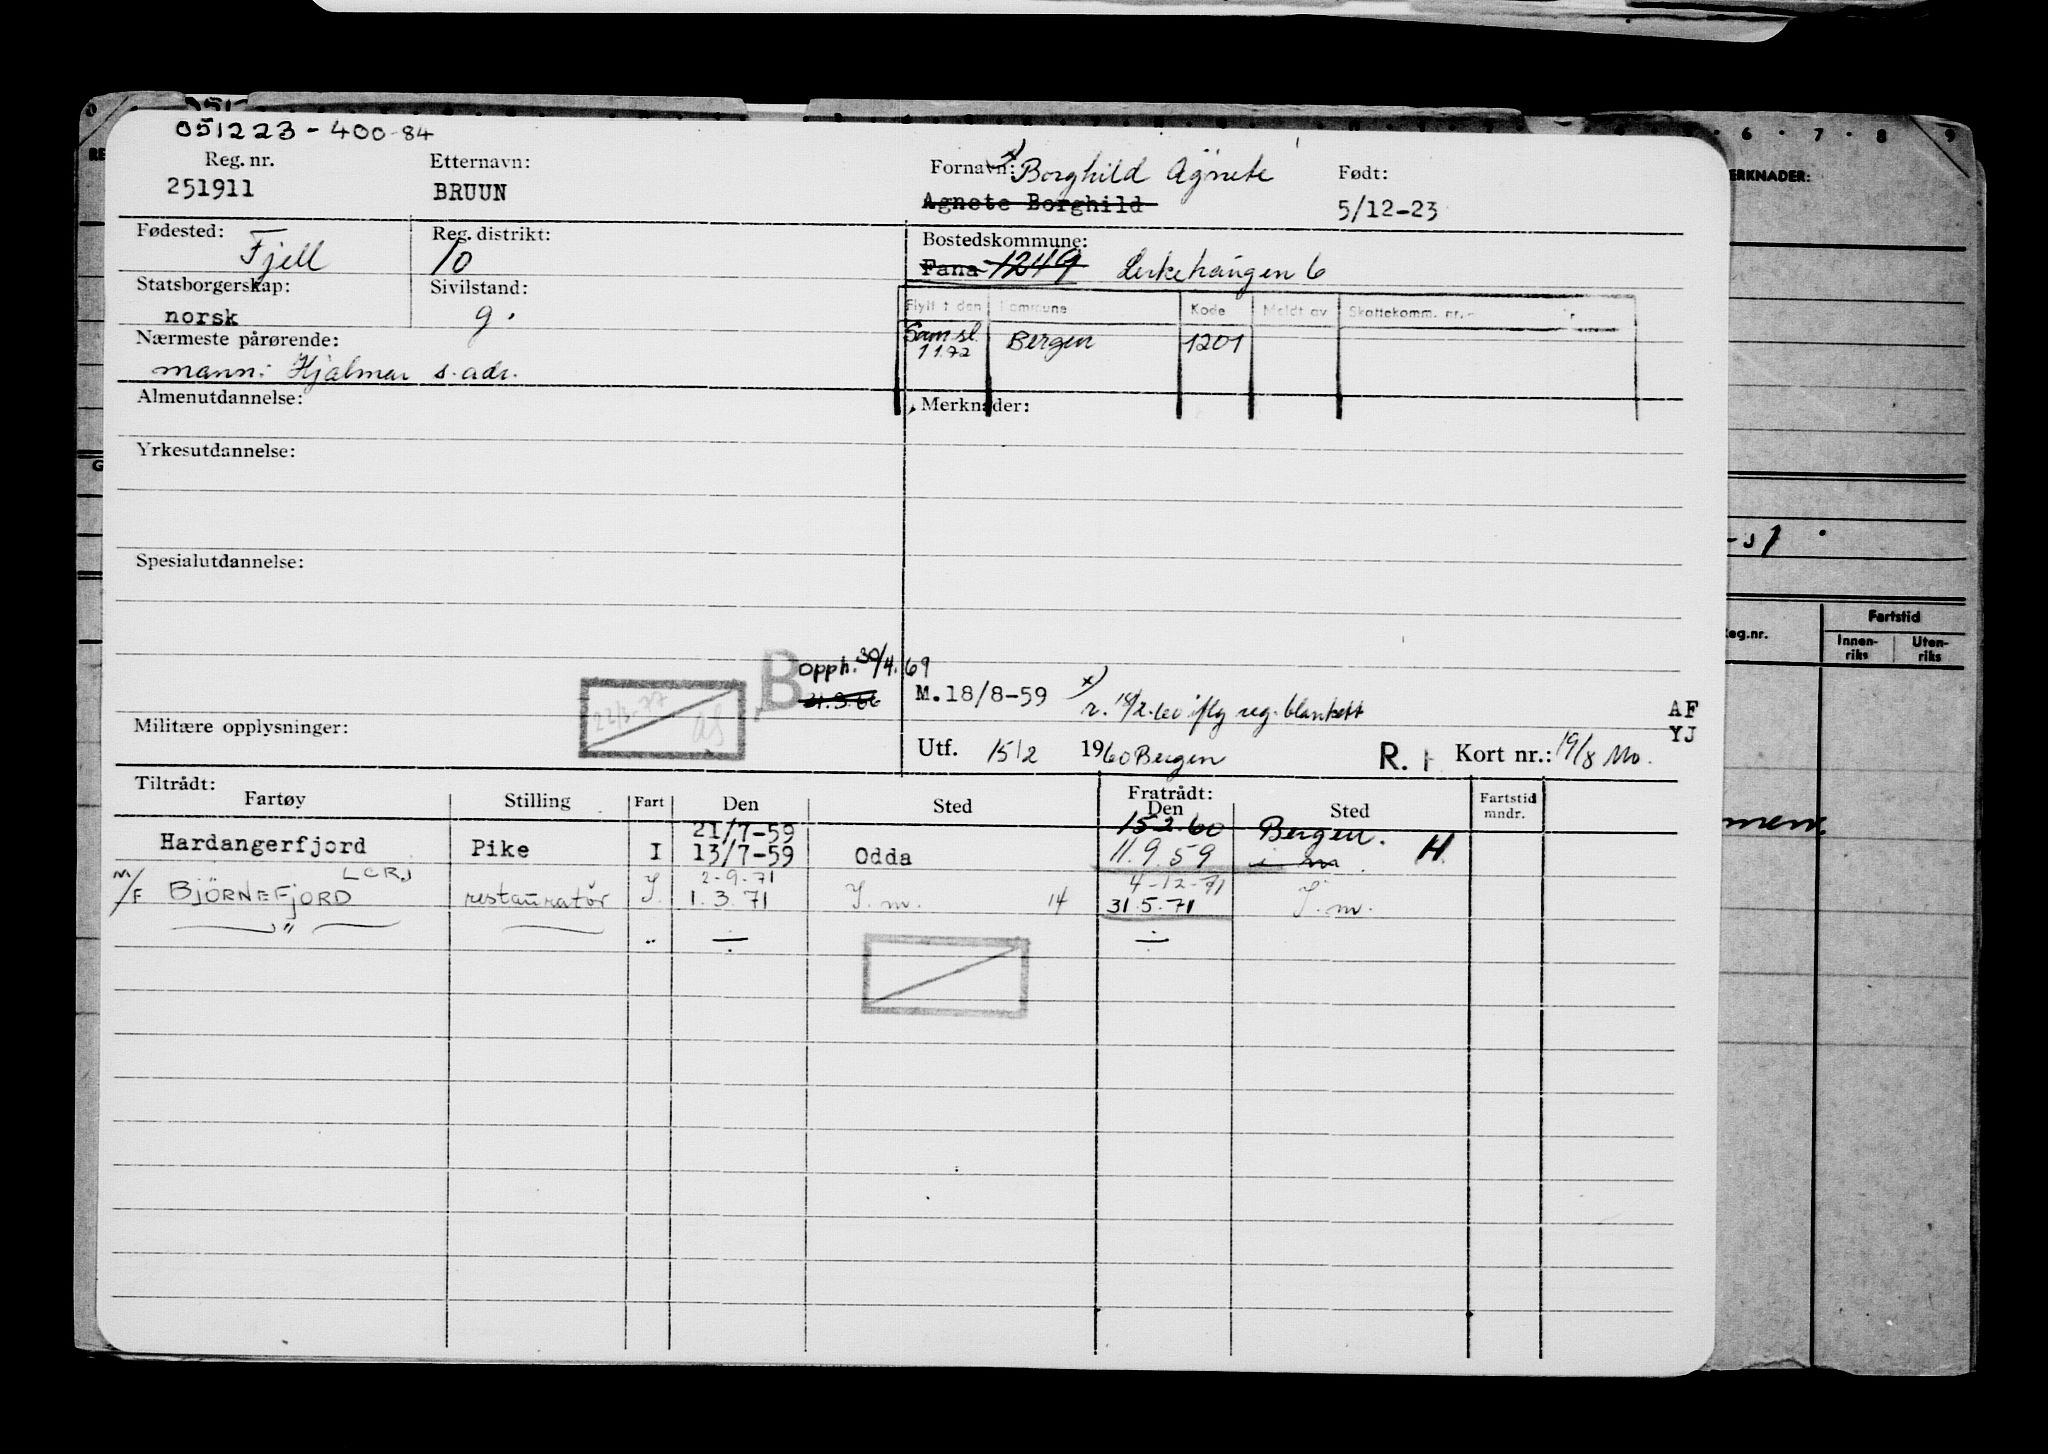 051223-400-84
Reg. nr.
251911
Etternavn:
BRUUN
Fornavn: x) Borghild Agnete
Agnete Borghild
Født:
5/12-23
Fødested:
Fjell
Reg. distrikt:
10
Bostedskommune:
Fana 1249
Statsborgerskap:
norsk
Sivilstand:
g.
Flytt t den Kommune Kode Meldt av Skattekomm. nr.
Sam sl. 1 1.72 Bergen 1201
Nærmeste pårørende:
mann: Hjalmar s. adr.
Almenutdannelse:
Merknader:
Yrkesutdannelse:
Spesialutdannelse:
B
Opph. 30/4.69
31.3.66
M.18/8-59 x) r. 18/2.60 iflg reg. blankett
22/3.77
AF
YJ
Militære opplysninger:
Utf. 15/2 1960 Bergen
R. Kort nr.: 19/8 Mo.
Tiltrådt:
Fartøy Stilling Fart Den Sted
Fratrådt:
Den Sted Fartstid mndr.
21/7-59 15.2.60 Bergen.
Hardangerfjord Pike I 13/7-59 Odda 11.9.59 i m H
LCRJ 2-9.71 4-12-71
M/F BJÖRNEFJORD restauratør I. 1.3.71 I. m. 14 31.5.71 I. m.
"
6 7 8 9
ERKNADER:
eg.nr.
Fartstid
Innenriks Utenriks